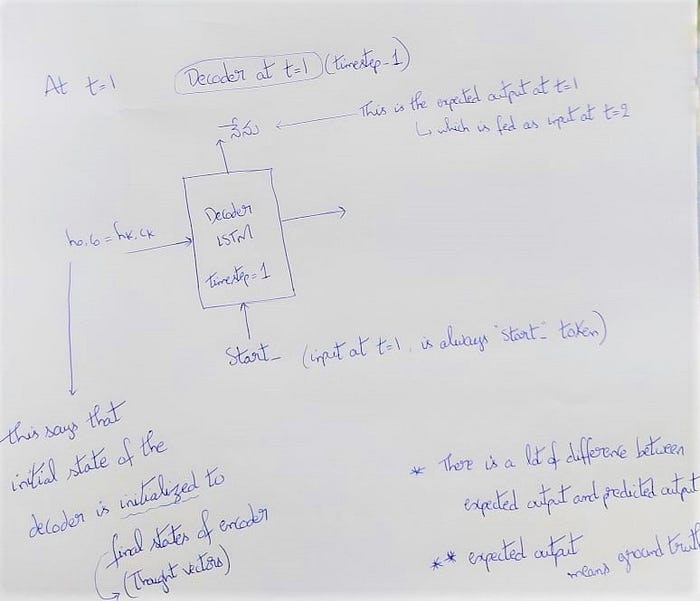 At t=1
Decoder at t=1 (timestep-1)
నేను
This is the expected output at t=1
↳ which is fed as input at t=2
Decoder
LSTM
timestep=1
h₀,c₀ = hₖ,cₖ
Start_ (input at t=1, is always "Start_" token)
this says that
initial state of the
decoder is initialized to
final states of encoder
(Thought vectors)
* There is a lot of difference between
expected output and predicted output
** expected output
means ground truth